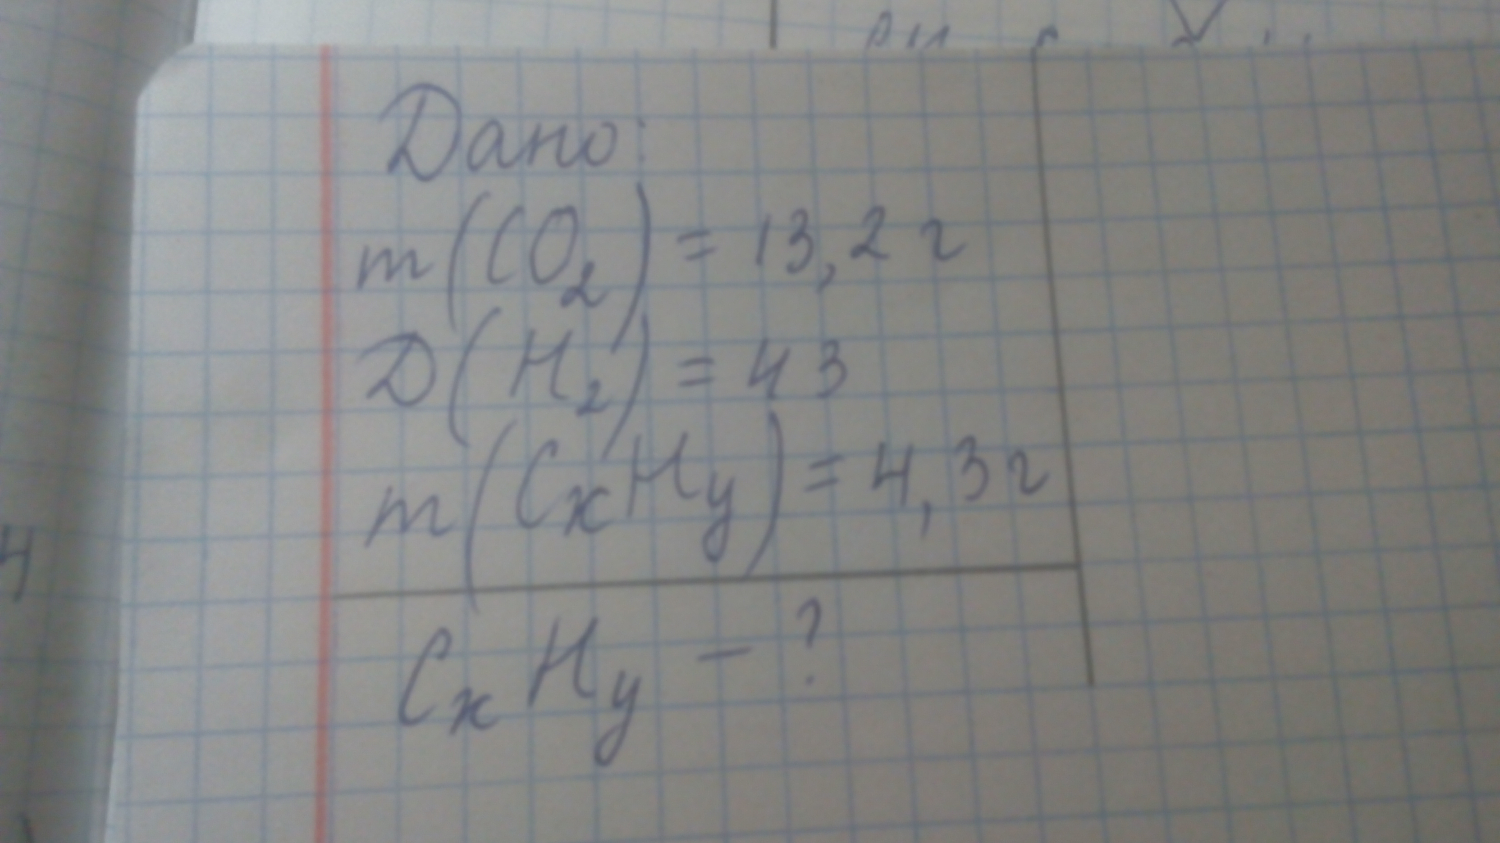 Дано:
m(CO₂) = 13,2 г
D(H₂) = 43
m(CxHy) = 4,3 г
CxHy - ?